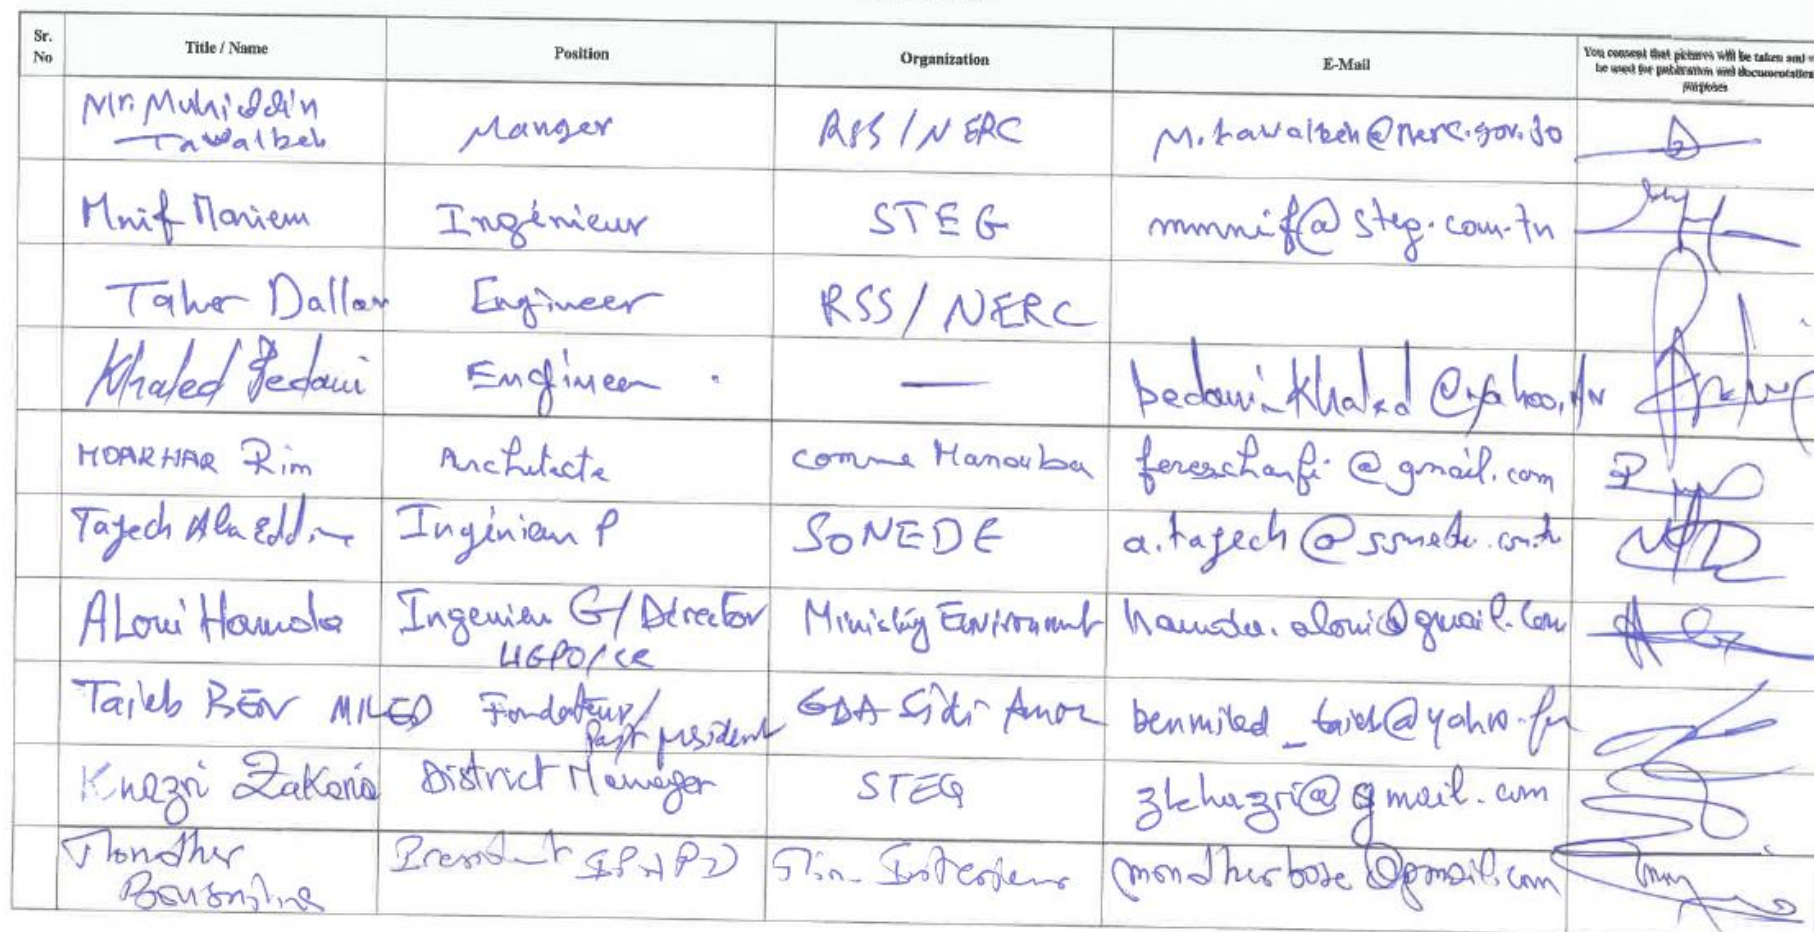 Sr. No Title / Name Position Organization E-Mail You consent that pictures will be taken and be used for publication and documentation purposes
Mr. Muhiddin Tawalbeh Manger RSS / NERC M.tawalbeh@nerc.gov.Jo
Mnif Mariem Ingénieur STEG mmnif@steg.com.tn
Taher Dallar Engineer RSS / NERC
Khaled Bedoui Engineer — bedoui_Khaled@yahoo.fr
Rim Architecte comune Manouba @gmail.com
Tayech Ala Eddine Ingénieur P SONEDE a.tayech@sonede.com.tn
ALoui Hamada Ingenieur G/ Director Ministry Environment hamada.aloui@gmail.com
Taieb BEN MILED Fondateur/ Past president GDA Sidi Amor benmiled_taieb@yahoo.fr
Khazri Zakaria District Manager STEG zkhazri@gmail.com
Mondher President @gmail.com